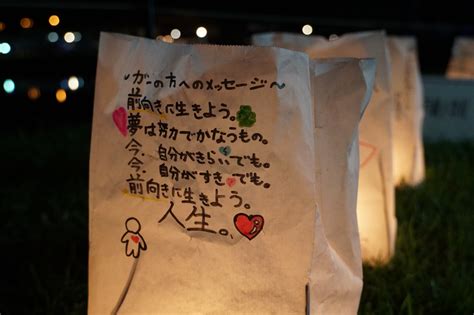 〜がーの方へのメッセージ〜
前向きに生きよう。
夢は努力でかなうもの。
今、自分がきらいでも。
今、自分がすきでも。
前向きに生きよう。
人生。